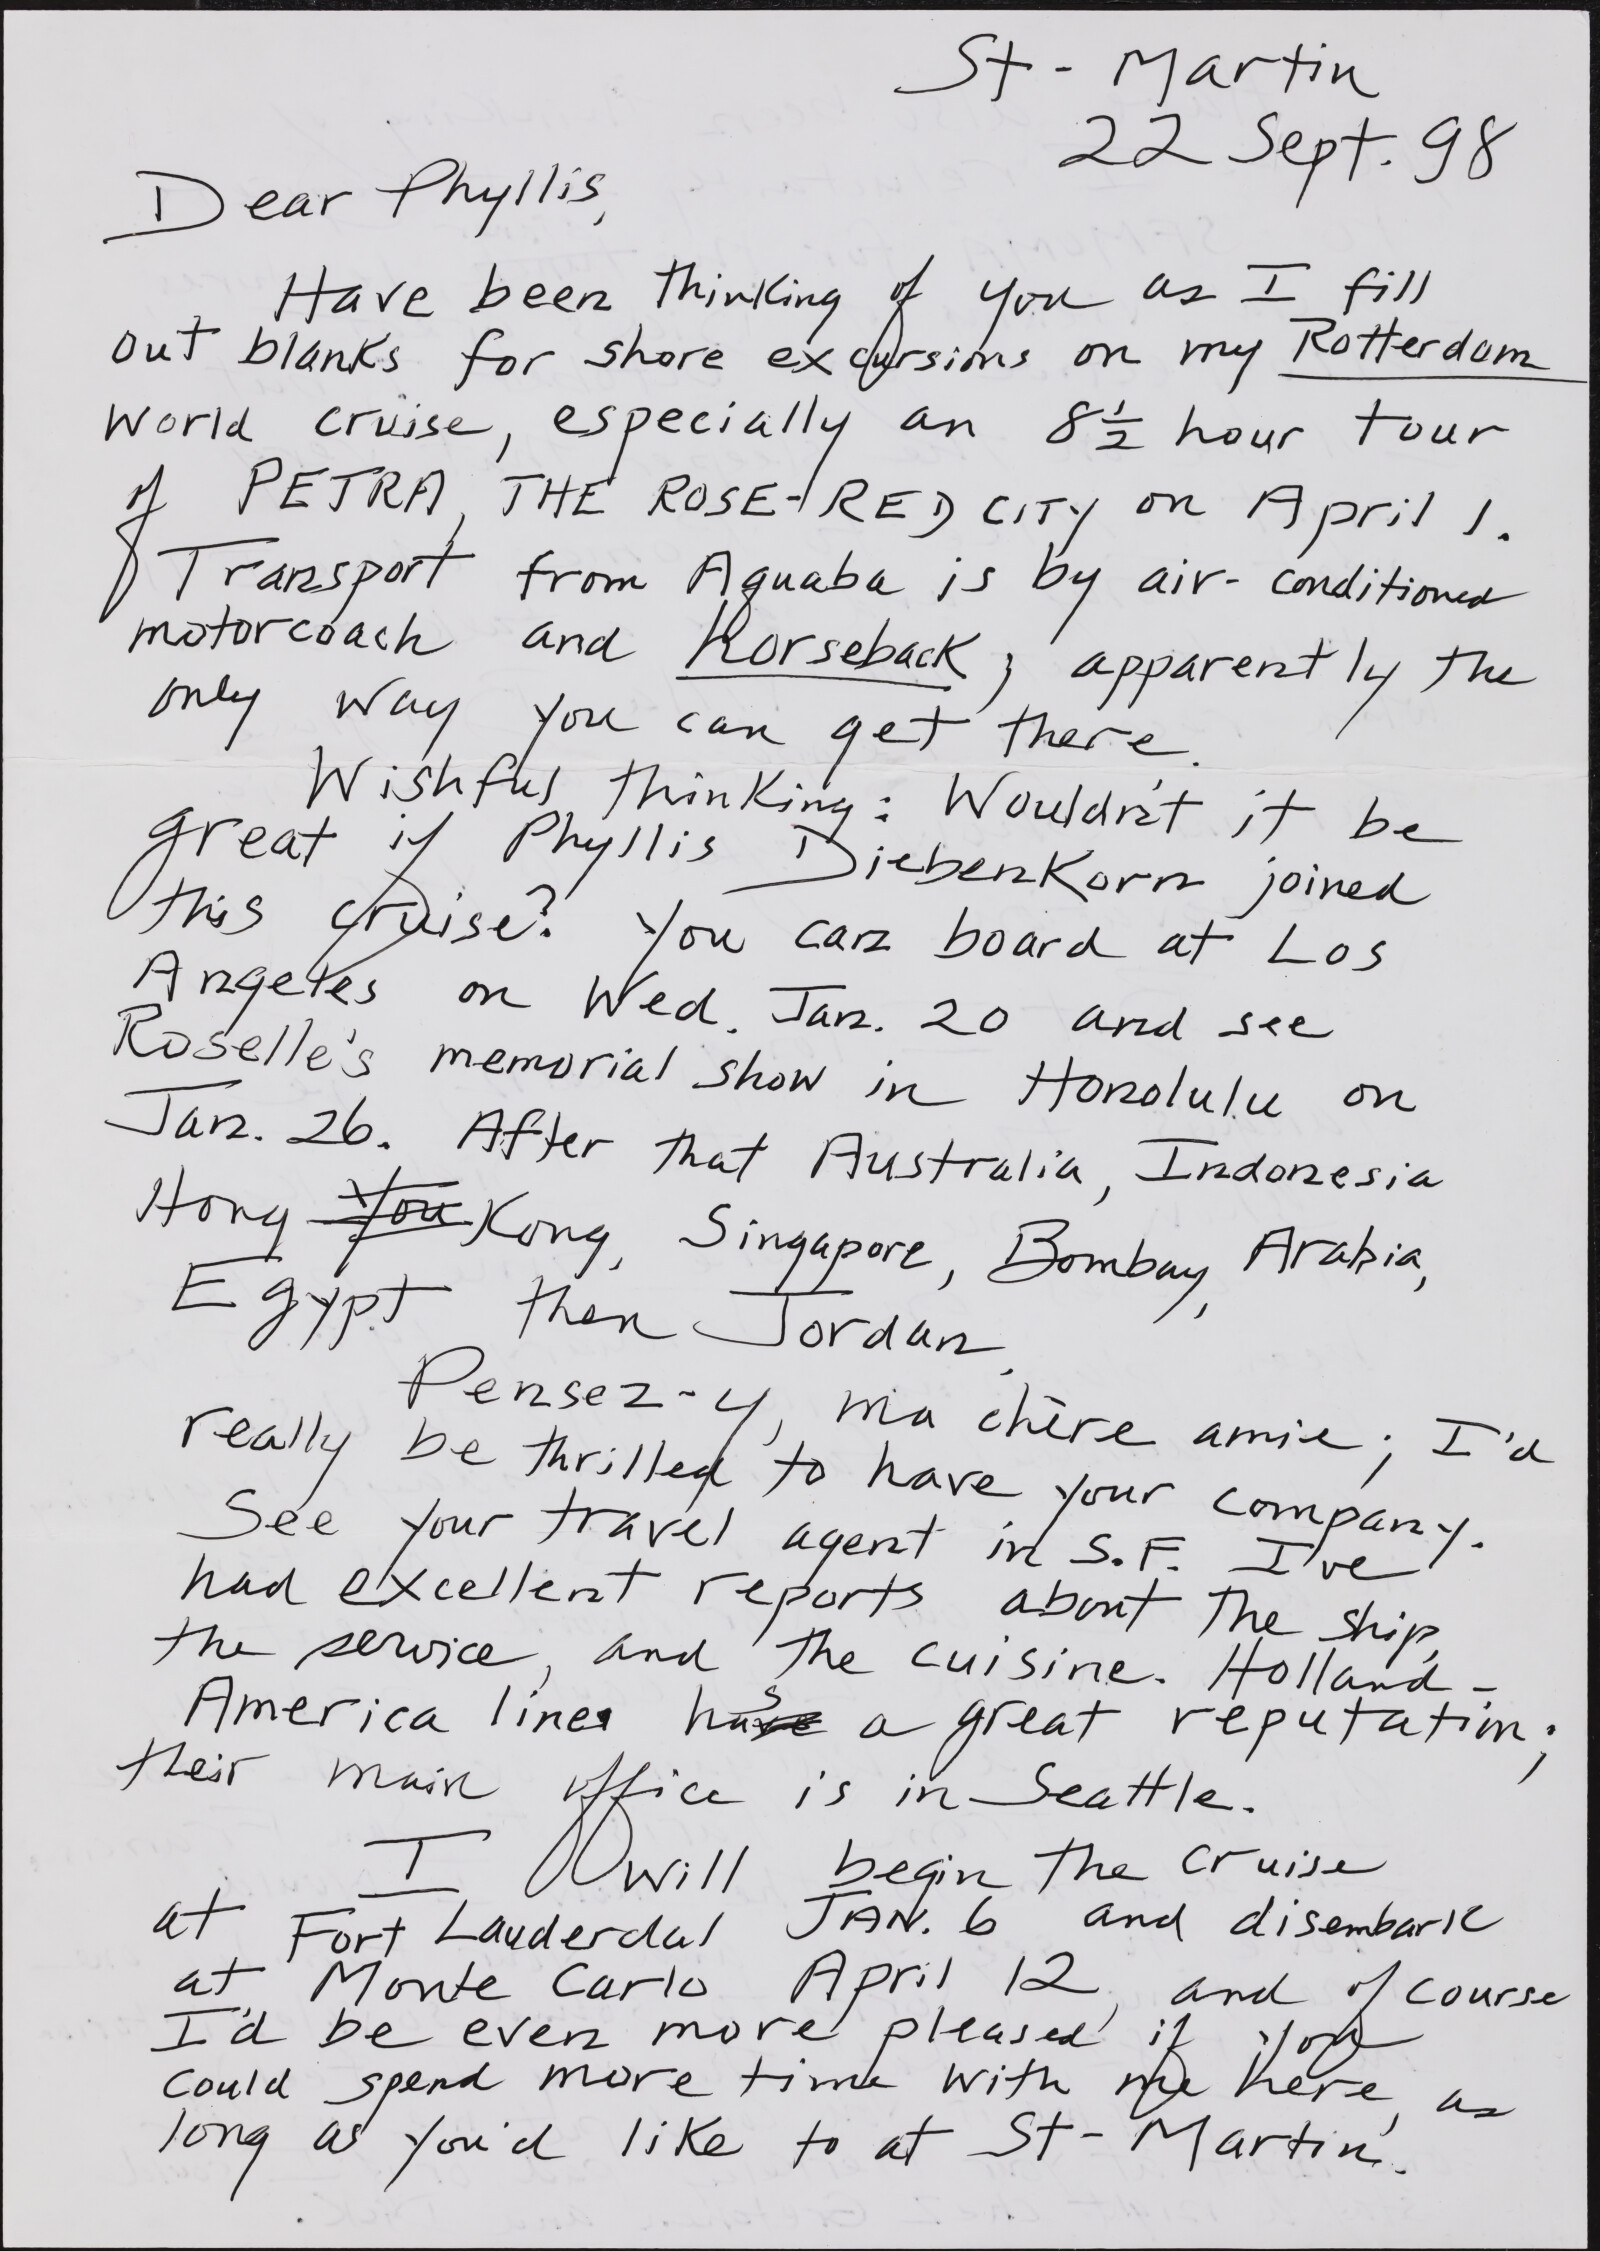 St-Martin
22 Sept. 98
Dear Phyllis,
Have been thinking of you as I fill
out blanks for shore excursions on my Rotterdam
World cruise, especially an 8½ hour tour
of PETRA, THE ROSE-RED CITY on April 1.
Transport from Aquaba is by air-conditioned
motorcoach and horseback; apparently the
only way you can get there.
Wishful thinking: Wouldn't it be
great if Phyllis Diebenkorn joined
this cruise? You can board at Los
Angeles on Wed. Jan. 20 and see
Roselle's memorial show in Honolulu on
Jan. 26. After that Australia, Indonesia
Hong You Kong, Singapore, Bombay, Arabia,
Egypt then Jordan.
Pensez-y, ma chère amie; I'd
really be thrilled to have your company.
See your travel agent in S.F. I've
had excellent reports about the ship,
the service, and the cuisine. Holland-
America line has a great reputation;
their main office is in Seattle.
I will begin the cruise
at Fort Lauderdal JAN. 6 and disembark
at Monte Carlo April 12, and of course
I'd be even more pleased if you
could spend more time with me here, as
long as you'd like to at St-Martin.